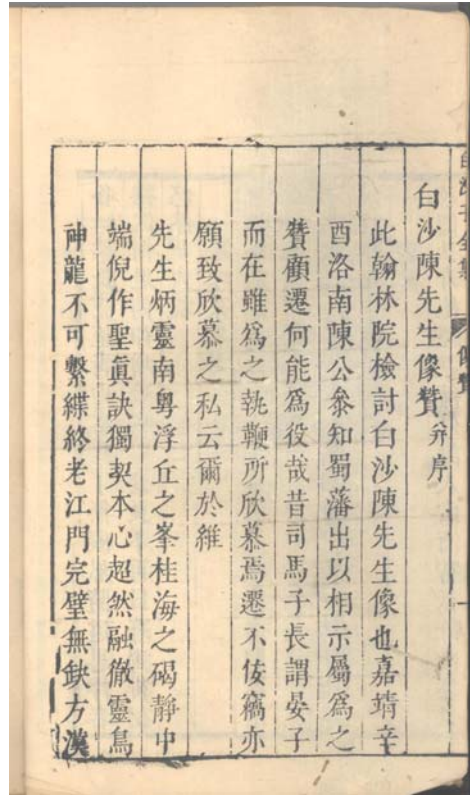 白沙子全集 像贊
白沙陳先生像贊 并序
此翰林院檢討白沙陳先生像也嘉靖辛
酉洛南陳公叅知蜀藩出以相示屬爲之
贊顧遷何能爲役哉昔司馬子長謂晏子
而在雖爲之執鞭所欣慕焉遷不佞竊亦
願致欣慕之私云爾於維
先生炳靈南粤浮丘之峯桂海之碣靜中
端倪作聖眞訣獨契本心超然融徹靈鳥
神龍不可繫緤終老江門完璧無缺方漢